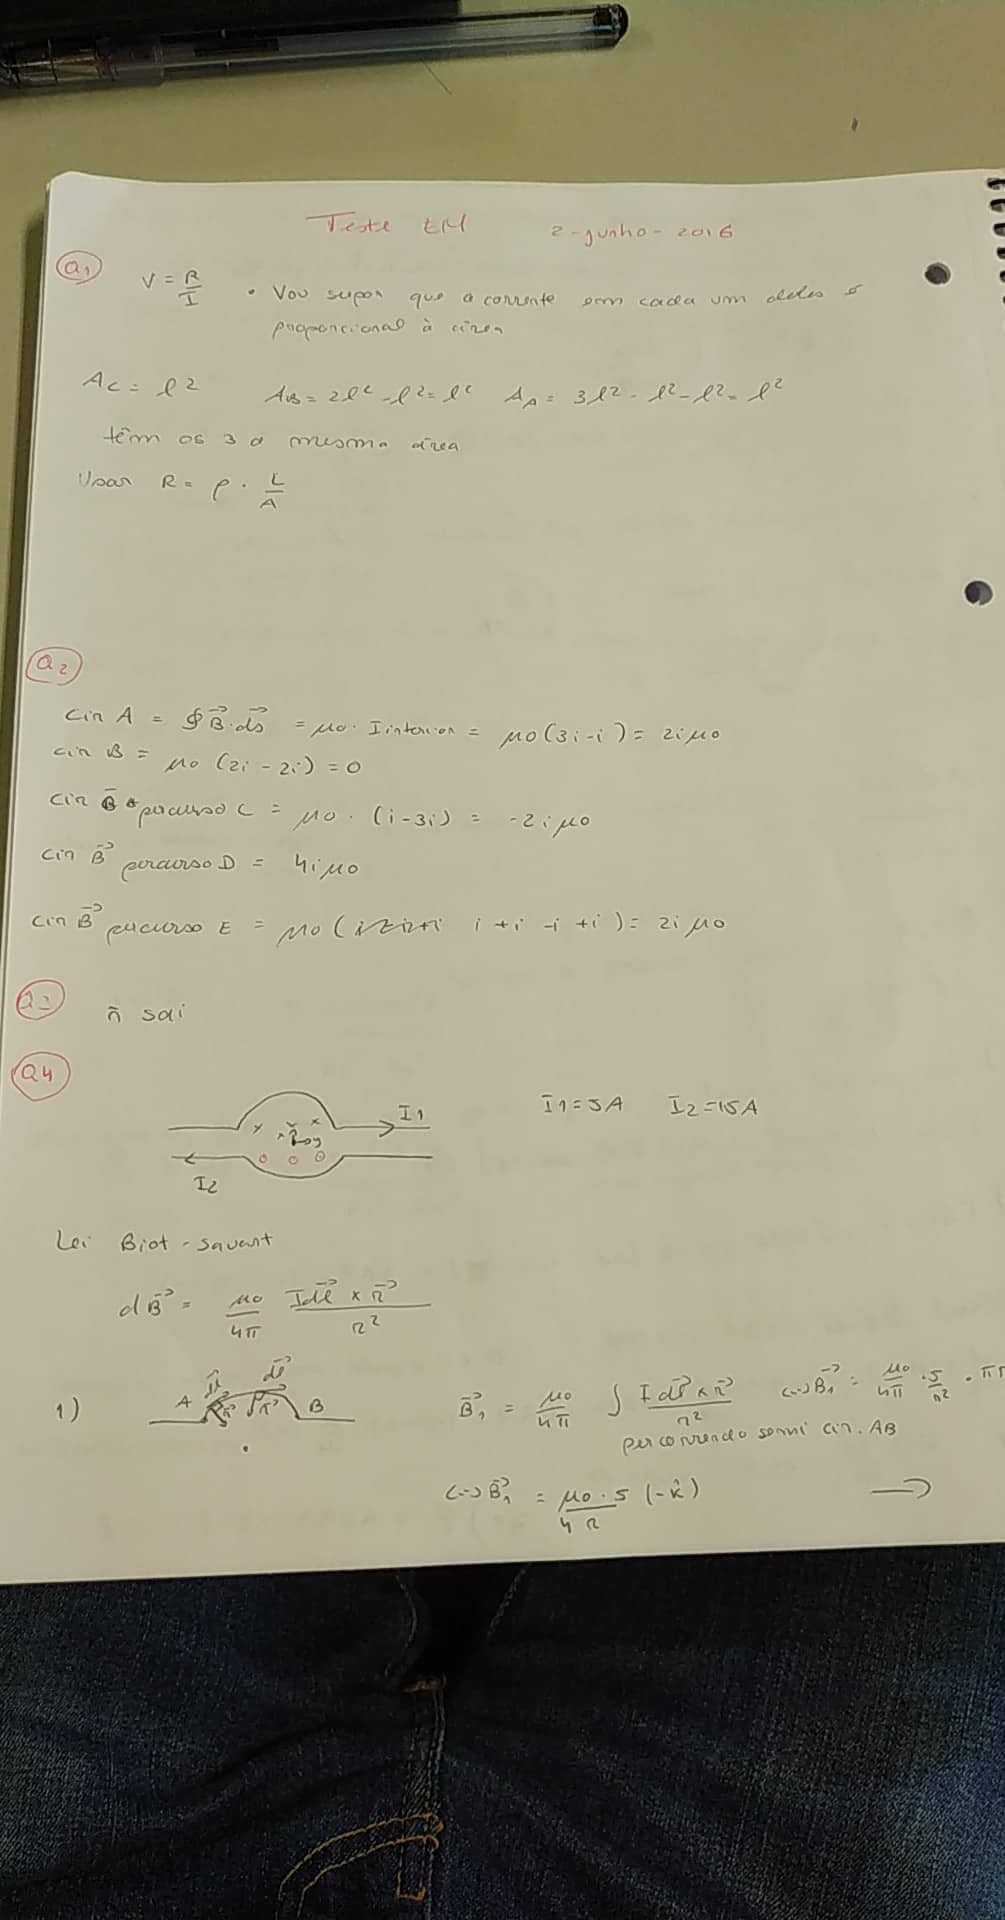 Teste EM 2-junho-2016
Q1
V = R/I • Vou supor que a corrente em cada um deles é
proporcional à área
Ac = l² AB = 2l² - l² = l² AA = 3l² - l² - l² = l²
têm os 3 a mesma área
Usar R = ρ · L/A
Q2
Cir A = ∮ B⃗·ds⃗ = μ0 · Iinterior = μ0(3i-i) = 2iμ0
Cir B = μ0 (2i - 2i) = 0
Cir B⃗ percurso C = μ0 · (i-3i) = -2iμ0
Cir B⃗ percurso D = 4iμ0
Cir B⃗ percurso E = μ0( i+i -i +i ) = 2iμ0
Q3
ñ sai
Q4
I1 I1=5A I2=15A
I2
Lei Biot-Savart
dB⃗ = μ0/4π Idl⃗ × r⃗/r²
1) A dl⃗ r⃗ B B⃗1 = μ0/4π ∫ I dl⃗ × r⃗/r² <-> B⃗1 = μ0/4π · 5/r² · πr
percorrendo semi cir. AB
<-> B⃗1 = μ0 · 5/4r (-k̂) →